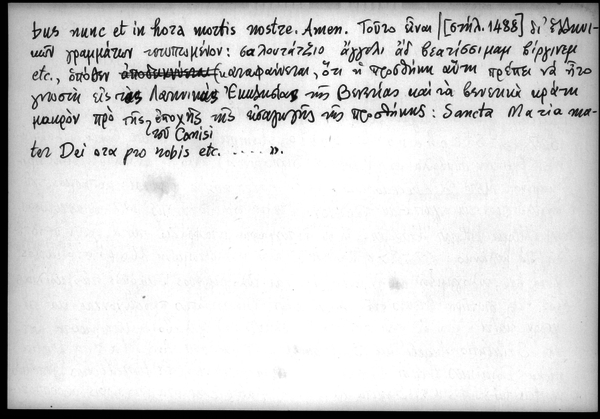 bus nunc et in hora mortis nostre. Amen. Τοῦτο εἶναι [στήλ. 1488] δι' ἑλληνι-
κῶν γραμμάτων τετυπωμένον: σαλουτάτζιο ἄγγελι ἀδ βεατίσσιμαμ βίργινεμ
etc., ὁπόθεν καταφαίνεται, ὅτι ἡ προσθήκη αὕτη πρέπει νὰ ἦτο
γνωστὴ εἰς τὰς Λατινικὰς Ἐκκλησίας τῆς Βενετίας καὶ τὰ βενετικὰ κράτη
μακρὸν πρὸ τῆς ἐποχῆς τοῦ Canisi τῆς εἰσαγωγῆς τῆς προσθήκης: Sancta Maria ma-
ter Dei ora pro nobis etc. ..... ».